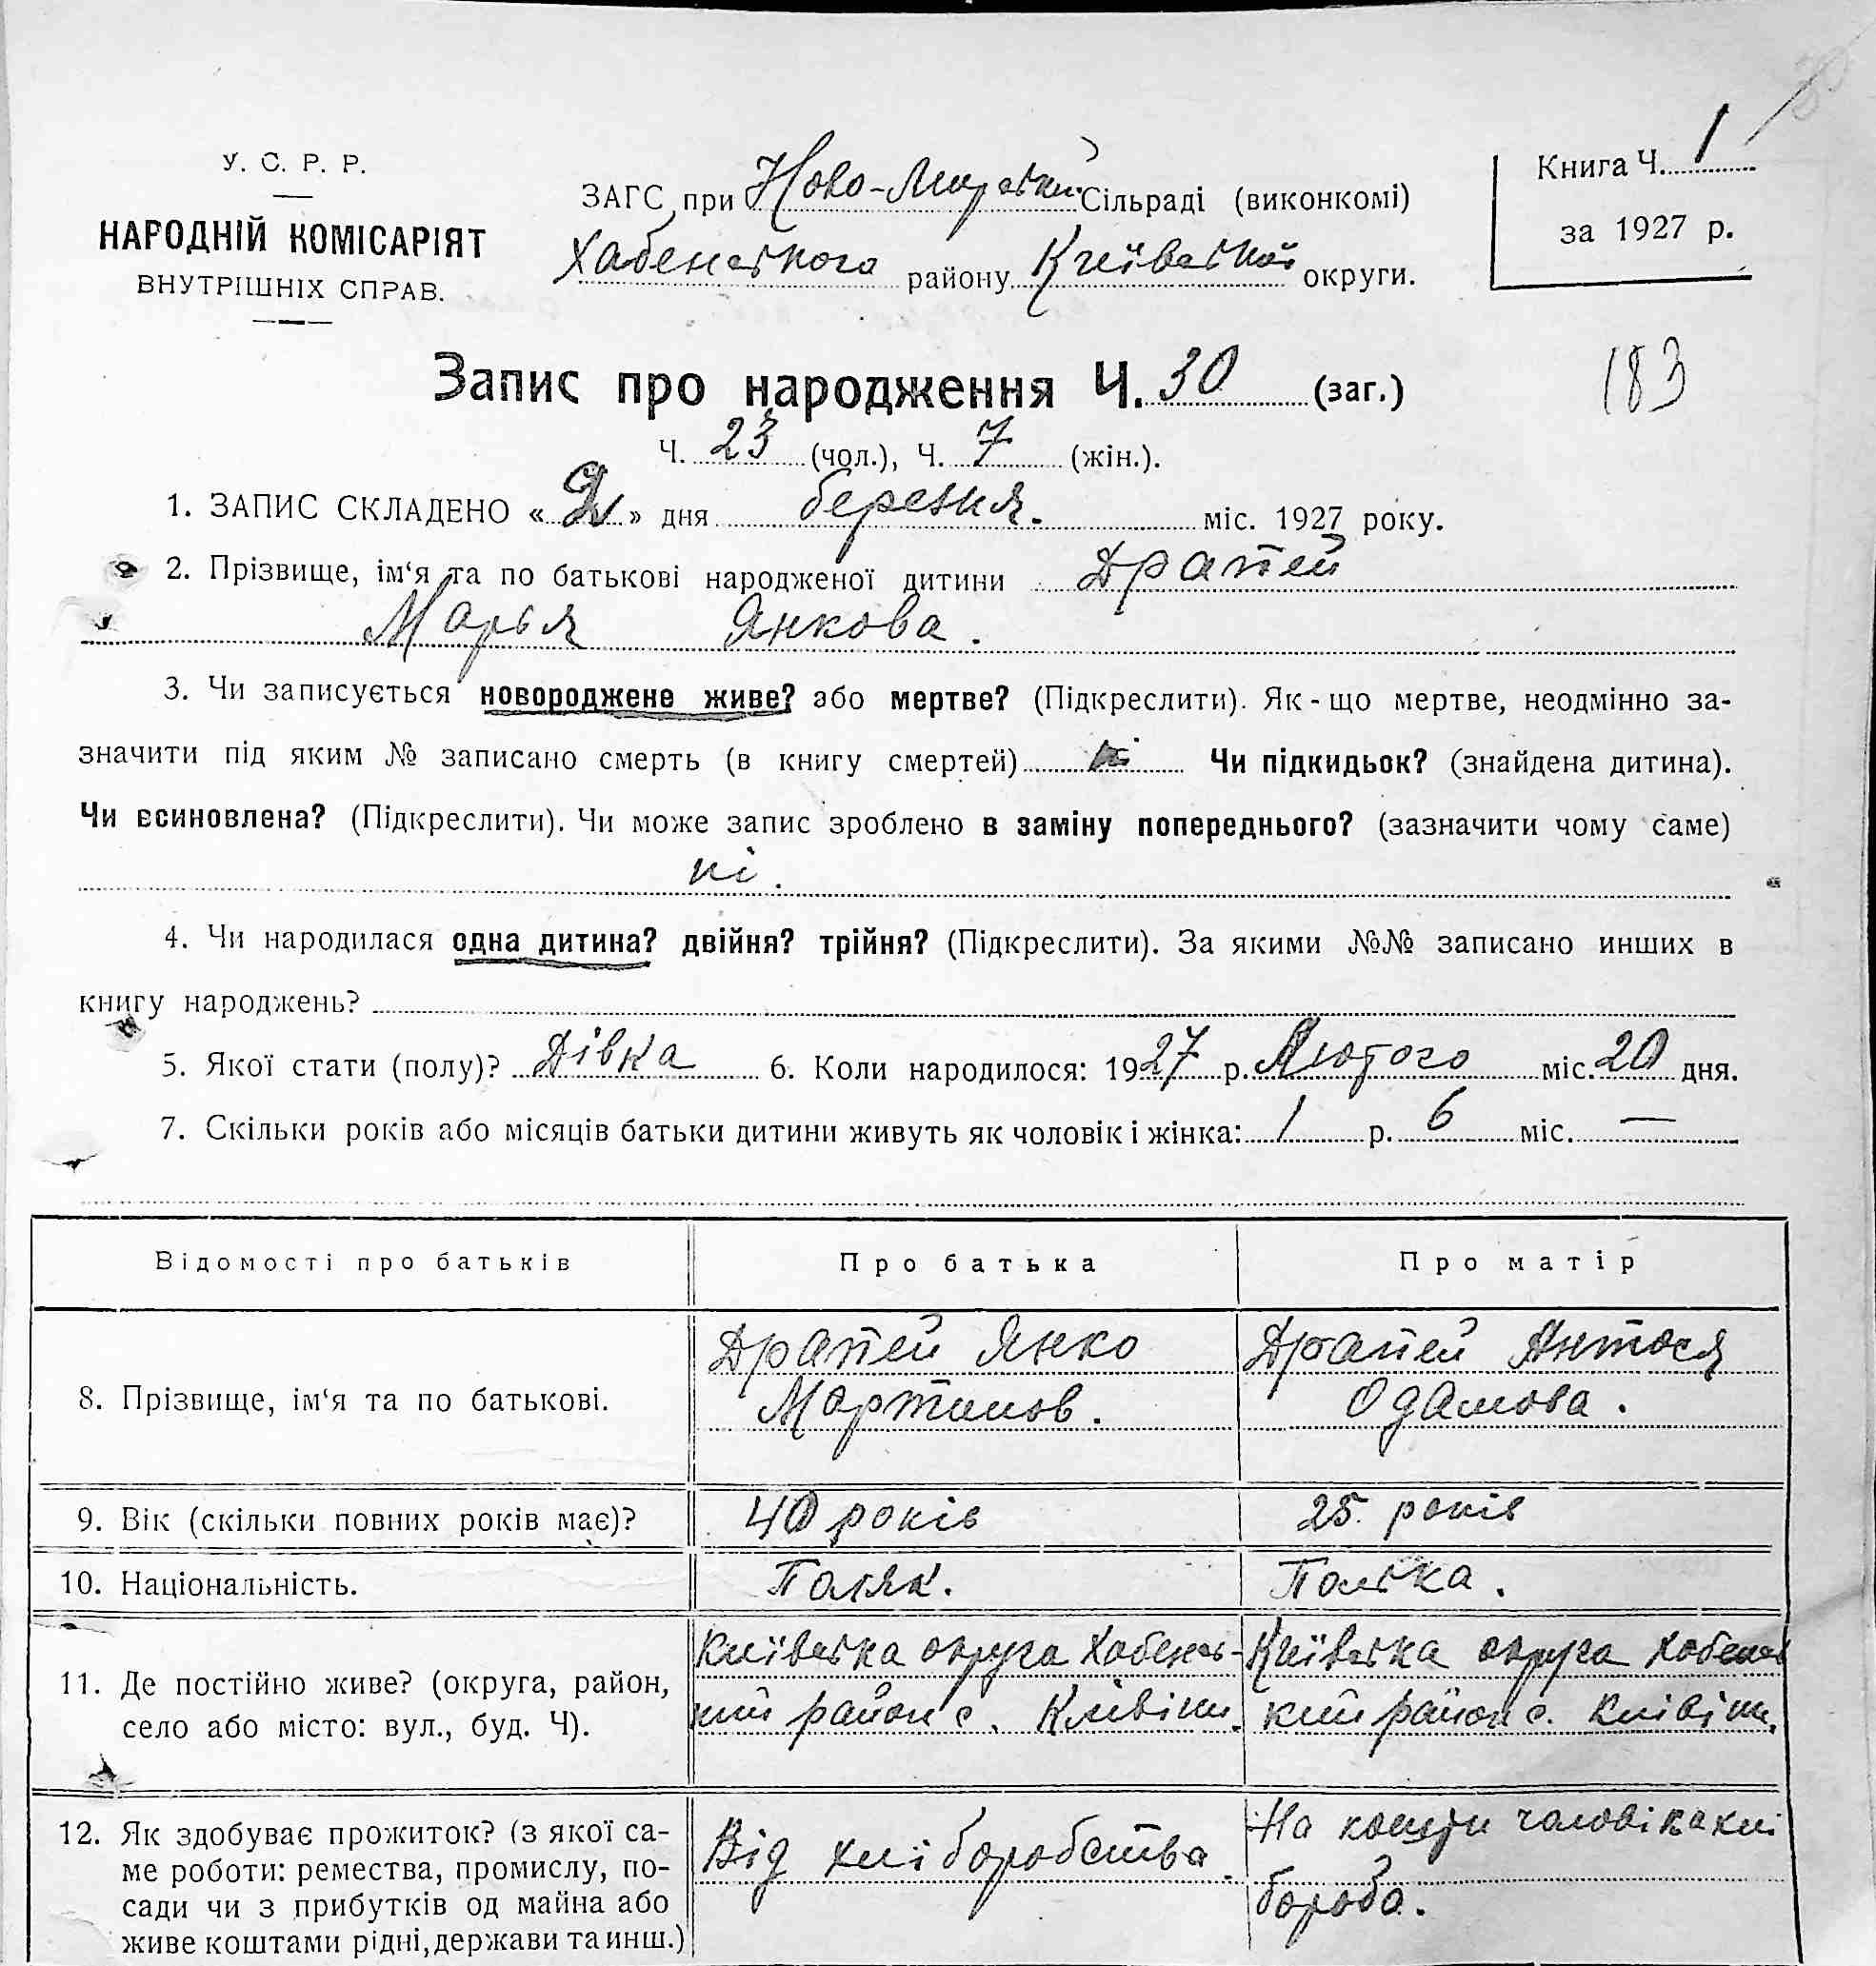 У. С. Р. Р.
НАРОДНІЙ КОМІСАРІЯТ
ВНУТРІШНІХ СПРАВ.
ЗАГС при Ново-Мирській Сільраді (виконкомі)
Хабенського району Київської округи.
Книга Ч. 1
за 1927 р.
183
Запис про народження Ч. 30 (заг.)
Ч. 23 (чол.), Ч. 7 (жін.).
1. ЗАПИС СКЛАДЕНО «2» дня березня. міс. 1927 року.
2. Прізвище, ім‘я та по батькові народженої дитини Драпей
Марья Янкова.
3. Чи записується новороджене живе? або мертве? (Підкреслити). Як-що мертве, неодмінно за-
значити під яким № записано смерть (в книгу смертей) Чи підкидьок? (знайдена дитина).
Чи всиновлена? (Підкреслити). Чи може запис зроблено в заміну попереднього? (зазначити чому саме)
ні.
4. Чи народилася одна дитина? двійня? трійня? (Підкреслити). За якими №№ записано инших в
книгу народжень?
5. Якої стати (полу)? Дівка 6. Коли народилося: 1927 р. Лютого міс. 20 дня.
7. Скільки років або місяців батьки дитини живуть як чоловік і жінка: 1 р. 6 міс. —
Відомості про батьків Про батька Про матір
8. Прізвище, ім‘я та по батькові. Драпей Янко Мартинов. Драпей Антося Одамова.
9. Вік (скільки повних років має)? 40 років 25 років
10. Національність. Поляк. Полька.
11. Де постійно живе? (округа, район,
село або місто: вул., буд. Ч).
Київська округа Хабенсь-
кий район с. Клівіни.
Київська округа Хабенсь
кий район с. Клівіни.
12. Як здобуває прожиток? (з якої са-
ме роботи: ремества, промислу, по-
сади чи з прибутків од майна або
живе коштами рідні, держави та инш.)
Від хліборобства.
На кошти чоловіка хлі
бороба.